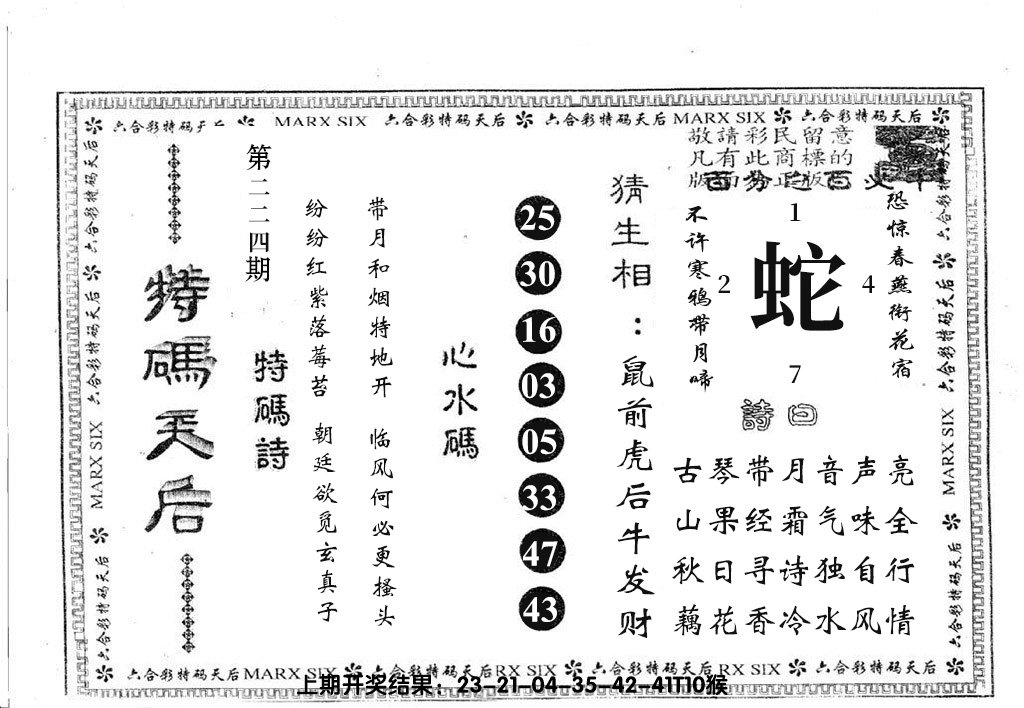 六合彩特码天后 MARX SIX 六合彩特码天后 六合彩特码天后 MARX SIX 六合彩特码天后
敬請彩民留意
凡有此商標的
版面為正版
特碼天后
第二二四期
特碼詩
纷纷红紫落莓苔 朝廷欲觅玄真子
带月和烟特地开 临风何必更搔头
心水碼
25
30
16
03
05
33
47
43
猜生相：鼠前虎后牛发财
不许寒鸦带月啼
1
2
蛇
4
7
恐惊春燕衔花宿
詩曰
古琴带月音声亮
山果经霜气味全
秋日寻诗独自行
藕花香冷水风情
六合彩特码天后
MARX SIX
六合彩特码天后
六合彩特码天后
MARX SIX
六合彩特码天后
六合彩特码天后 MARX SIX 六合彩特码天后 RX SIX 六合彩特码天后 RX SIX 六合彩特码天后
上期开奖结果：23-21-04-35-42-41T10猴